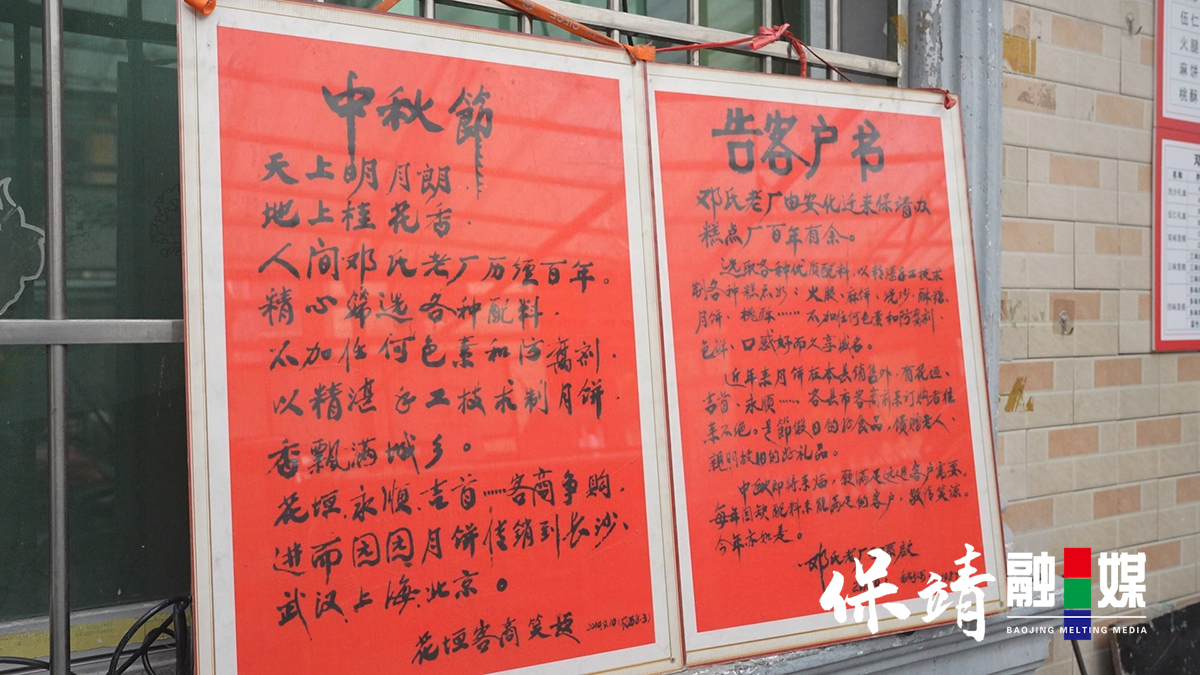 中秋節
天上明月朗.
地上桂花香.
人间邓氏老厂历经百年。
精心筛选各种配料.
不加任何色素和防腐剂
以精湛手工技术制月饼
香飘满城乡。
花垣.永顺.吉首……客商争购.
进而园园月饼佳销到长沙、
武汉上海.北京。
花垣客商
告客户书
邓氏老厂由安化迁来保靖办
糕点厂百年有余。
选取各种优质配料,以精湛手工技术
制各种糕点出:火腿、麻饼、洗沙、酥糖、
月饼、桃酥……不加任何色素和防腐剂.
色鲜、口感好而久享誉名。
近年来月饼在本县销售外,有花垣、
吉首、永顺……各县市客商前来订购者络
是節假日的好食品,馈赠老人、
親朋故旧的好礼品。
中秋即将来临,
每年因缺配料未能满足的客户,敬请笑谅。
今年亦如是。
邓氏老厂
保靖融媒
BAOJING MELTING MEDIA
伍仁
火腿
麻饼
桃酥